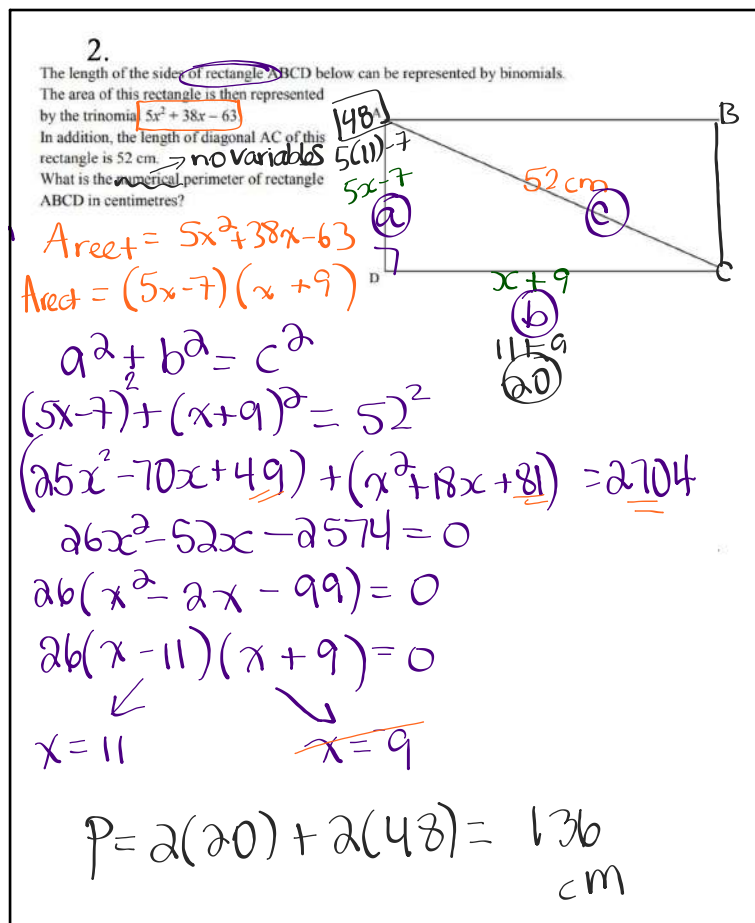 2.
The length of the sides of rectangle ABCD below can be represented by binomials.
The area of this rectangle is then represented
by the trinomial 5x² + 38x – 63
In addition, the length of diagonal AC of this
rectangle is 52 cm. → no variables
What is the numerical perimeter of rectangle
ABCD in centimetres?
48
B
5(11)-7
5x-7
52 cm
a
c
D
C
x + 9
b
11+9
20
Arect = 5x²+38x-63
Arect = (5x-7)(x+9)
a² + b² = c²
(5x-7)² + (x+9)² = 52²
(25x²-70x+49) + (x²+18x+81) = 2704
26x²-52x-2574=0
26(x²-2x-99)=0
26(x-11)(x+9)=0
x=11 x=-9
P=2(20)+2(48)= 136
cm